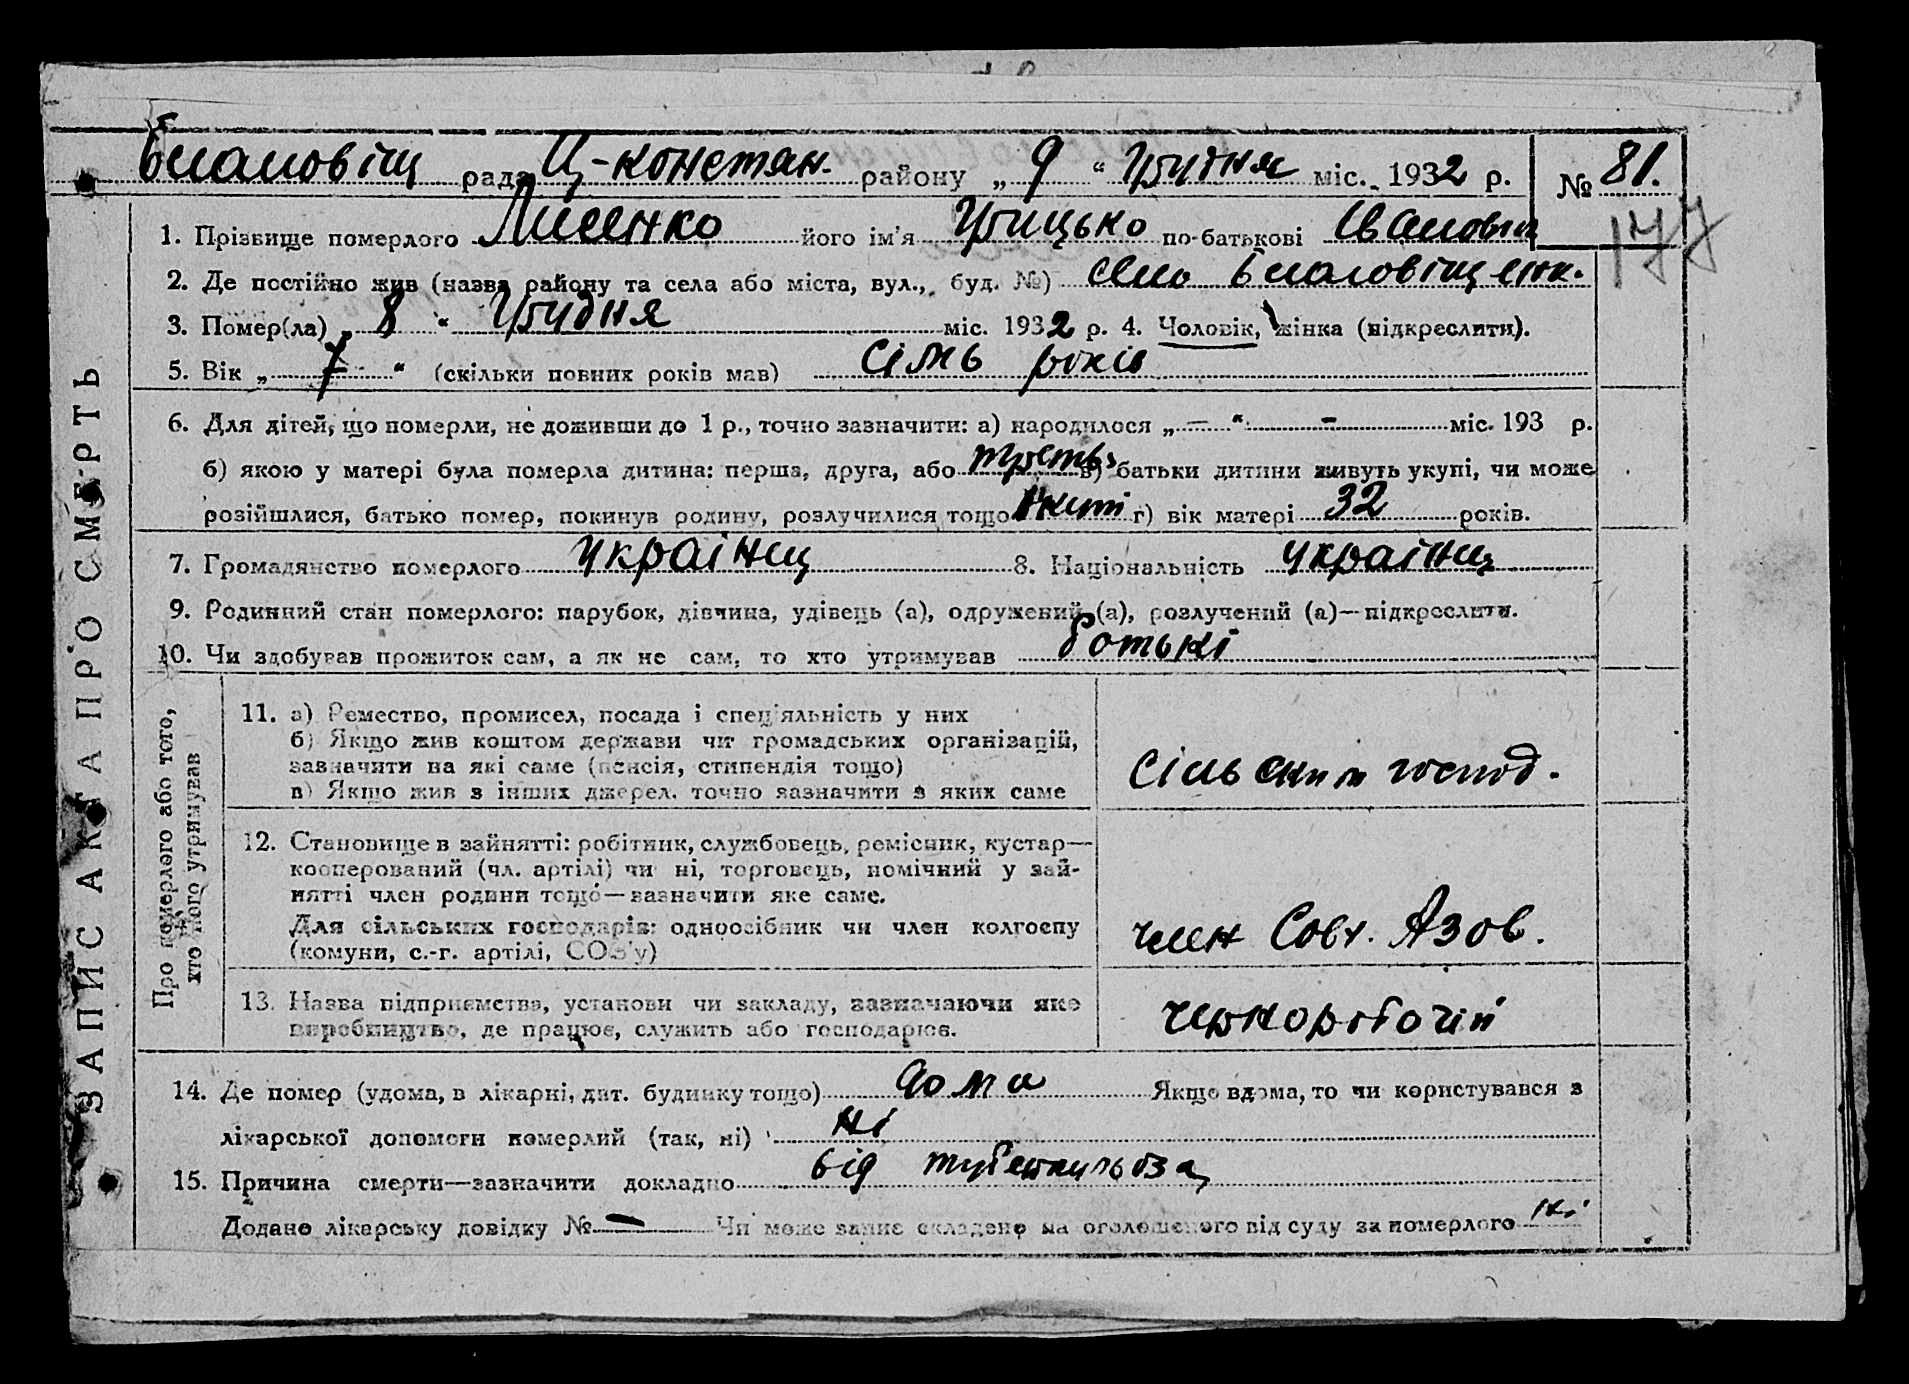 Благовіщ рада Ц-констян. району „ 9 “ Грудня міс. 1932 р. № 81.
177
1. Прізвище померлого Лисенко його ім'я Грицько по-батькові Іванович
2. Де постійно жив (назва району та села або міста, вул., буд. №) село Благовіщенк.
3. Помер(ла) „ 8 “ Грудня міс. 1932 р. 4. Чоловік, жінка (підкреслити).
5. Вік „ 7 “ (скільки повних років мав) сімь років
6. Для дітей, що померли, не доживши до 1 р., точно зазначити: а) народилося „ — “ - міс. 193 р.
б) якою у матері була померла дитина: перша, друга, або в) батьки дитини живуть укупі, чи може
розійшлися, батько помер, покинув родину, розлучилися тощо г) вік матері 32 років.
7. Громадянство померлого українц 8. Національність українц
9. Родинний стан померлого: парубок, дівчина, удівець (а), одружений (а), розлучений (а)—підкреслити.
10. Чи здобував прожиток сам, а як не сам, то хто утримував ботькі
ЗАПИС АКТА ПРО СМЕРТЬ
Про померлого або того,
хто його утримував
11. а) Ремество, промисел, посада і спец'яльність у них
б) Якщо жив коштом держави чи громадських організацій,
зазначити на які саме (пенсія, стипендія тощо)
в) Якщо жив з інших джерел, точно зазначити з яких саме
сільским господ.
12. Становище в зайнятті: робітник, службовець, ремісник, кустар—
кооперований (чл. артілі) чи ні, торговець, помічний у зай-
нятті член родини тощо—зазначити яке саме.
Для сільських господарів: одноосібник чи член колгоспу
(комуни, с.-г. артілі, СОЗ'у)
член Совх. Азов.
13. Назва підприємства, установи чи закладу, зазначаючи яке
виробництво, де працює, служить або господарює.
чернорабочій
14. Де помер (удома, в лікарні, дит. будинку тощо) дома Якщо вдома, то чи користувався з
лікарської допомоги померлий (так, ні) ні
15. Причина смерти—зазначити докладно від туберкульоза
Додано лікарську довідку № — Чи може запис складено на оголошеного під суду за померлого ні